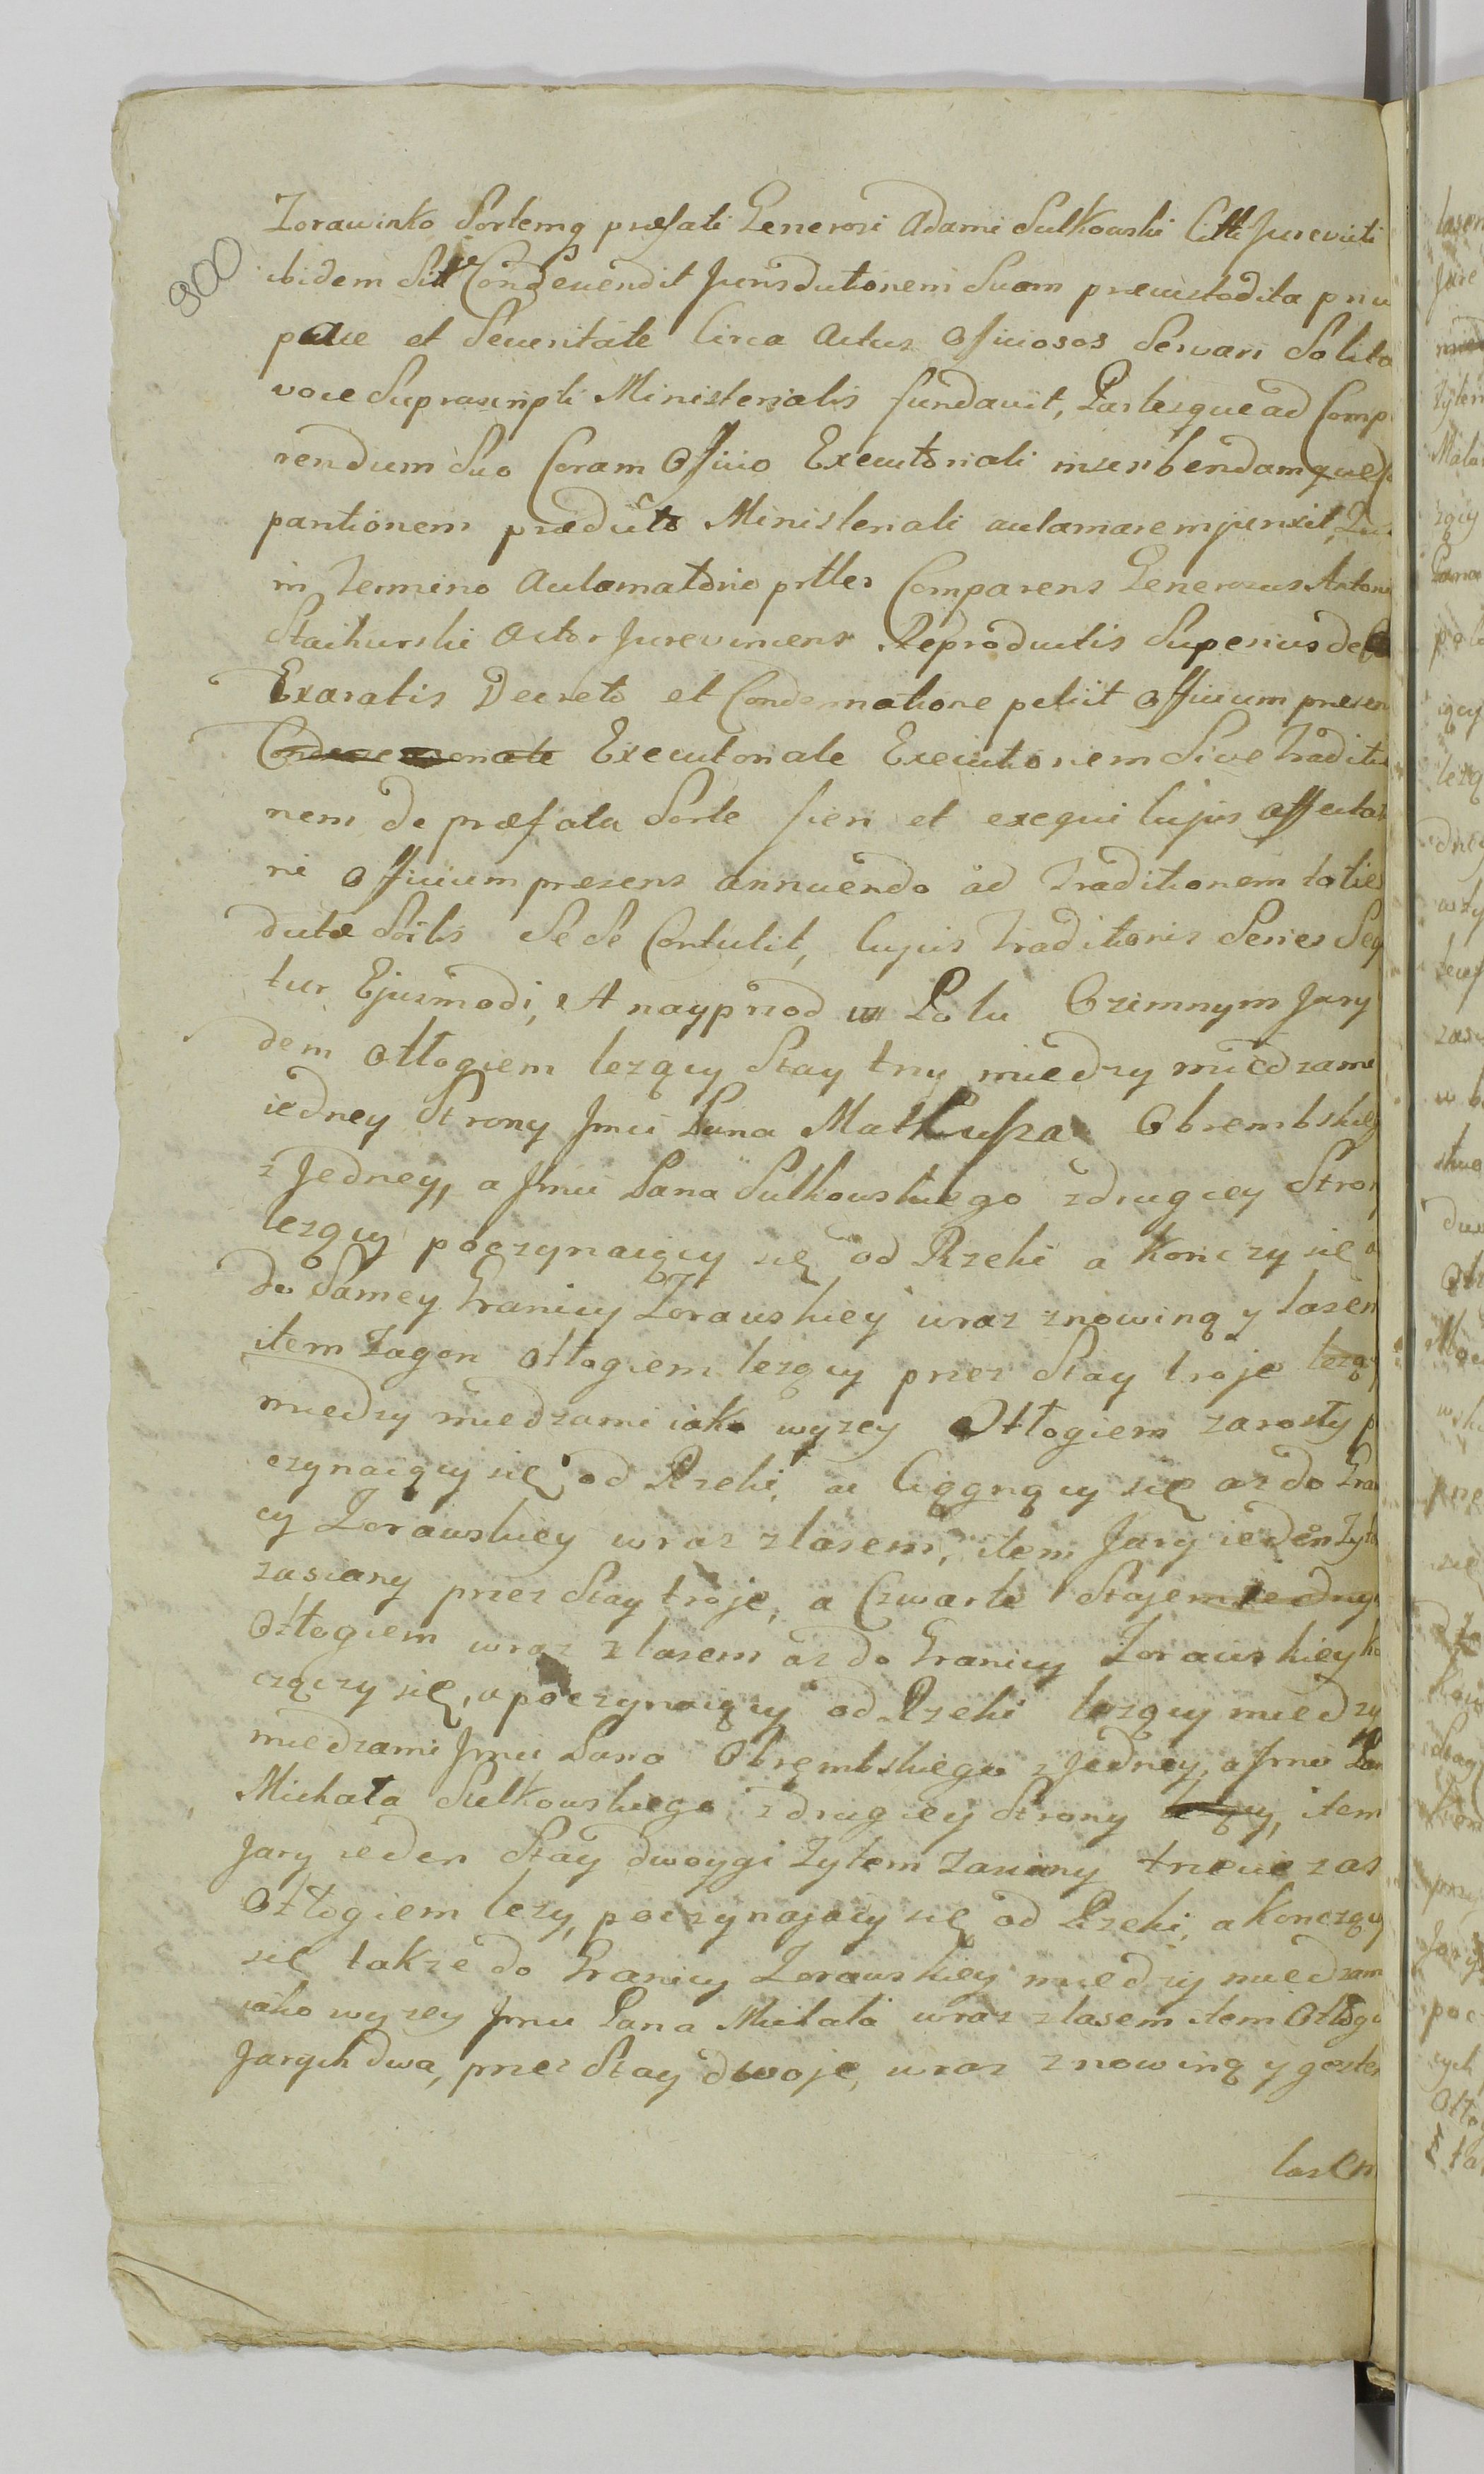 900
Zorawinko Sortemq præfati Generosi Adami Sulkowski Citti Jurevicti
ibidem Sit Condescendit Jurisdictionem Suam præcustodita priu
pace et Securitate Circa Actus Officiosos Servari Solita
voce Suprascripti Ministerialis fundavit, Partesque ad Comp
rendum Suo Coram Officio Executoriali inscribendamque
pantionem prædicto Ministeriali acclamare injunxit,
in Termino Acclamatorio pttler Comparens Generosus Antoni
Staihurski Actor Jurevincens Reproductis Superius de
Exaratis Decreto et Condemnatione petiit Officium præsen
Executoriale Executionem Sive Traditio
nem de præfata Sorte fieri et exequi Cujus affectati
ni Officium præsens annuendo ad Traditionem totie
dictæ Sortis Se Se Contulit, Cujus Traditionis Series Seq
tur Ejusmodi, A nayprzod w Polu Ozimnym Jary
dem Otłogiem lezący Stay trzy miedzy miedzami
iedney Strony Jmci Pana Mateusza Obrembskieg
z Jedney, a Jmci Pana Sulkowskiego zdrugiey Stron
lezący poczynaiący się od Rzeki a Konczy się
do Samey Granicy Zorawskiey wraz znowiną y lasem
item Zagon Otłogiem lezący przez Stay troje lezący
miedzy miedzami iako wyzey Otłogiem zarosły p
czynaiący się od Rzeki, a Ciągnący się az do Gra
cy Zorawskiey wraz zlasem, item Jary ieden Zyt
zasiany przez Stay troje, a Czwarte Stajem
Otłogiem wraz zlasem az do Granicy Zorawskiey ko
czączy się, a poczynaiący od Rzeki lezący miedzy
miedzami Jmci Pana Obrembskiego z Jedney, a Jmci Pan
Michała Sulkowskiego zdrugiey Strony lezący, item
Jary ieden Stay dwoygi Zytem Zasiany trzecie zas
Otłogiem lezy, poczynający się od Rzeki, a Konczący
się takze do Granicy Zorawskiey miedzy miedzam
iako wyzey Jmci Pana Michała wraz zlasem item Otłogi
Jarych dwa, przez Stay dwoje, wraz znowiną y gęstem
lasem